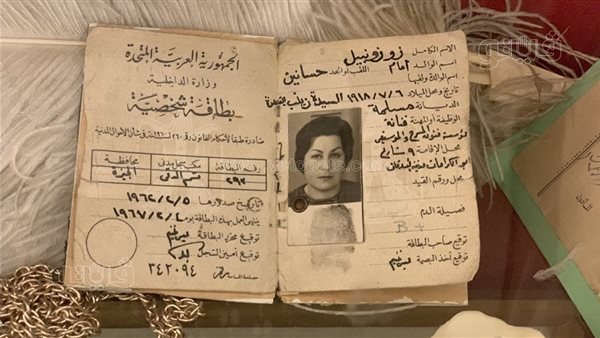 الجمهورية العربية المتحدة
وزارة الداخلية
بطاقة شخصية
صادرة طبقا لأحكام القانون رقم ٢٦٠ لسنة ١٩٦٠ في شأن الأحوال المدنية
رقم البطاقة
مكتب سجل مدني
محافظة
٢٩٢
قسم الدقى
الجيزة
تاريخ صدورها ١٩٦٢/٢/٥
ينتهى العمل بهذه البطاقة يوم ١٩٦٧/٢/٤
توقيع محرر البطاقة
توقيع أمين السجل
٣٤٢٠٩٤
الاسم الكامل زوزو نبيل
اسم الوالد إمام اللقب أو الجد حسانين
اسم الوالدة ولقبها
تاريخ ومحل الميلاد ١٩١٨/٧/٦ السيدة زينب
الديانة مسلمة
الوظيفة أو المهنة فنانة
مؤسسة فنون المسرح والموسيقى
محل الإقامة
محل ورقم القيد
فصيلة الدم
B +
توقيع صاحب البطاقة
توقيع آخذ البصمة
فيتو
vetogate.com